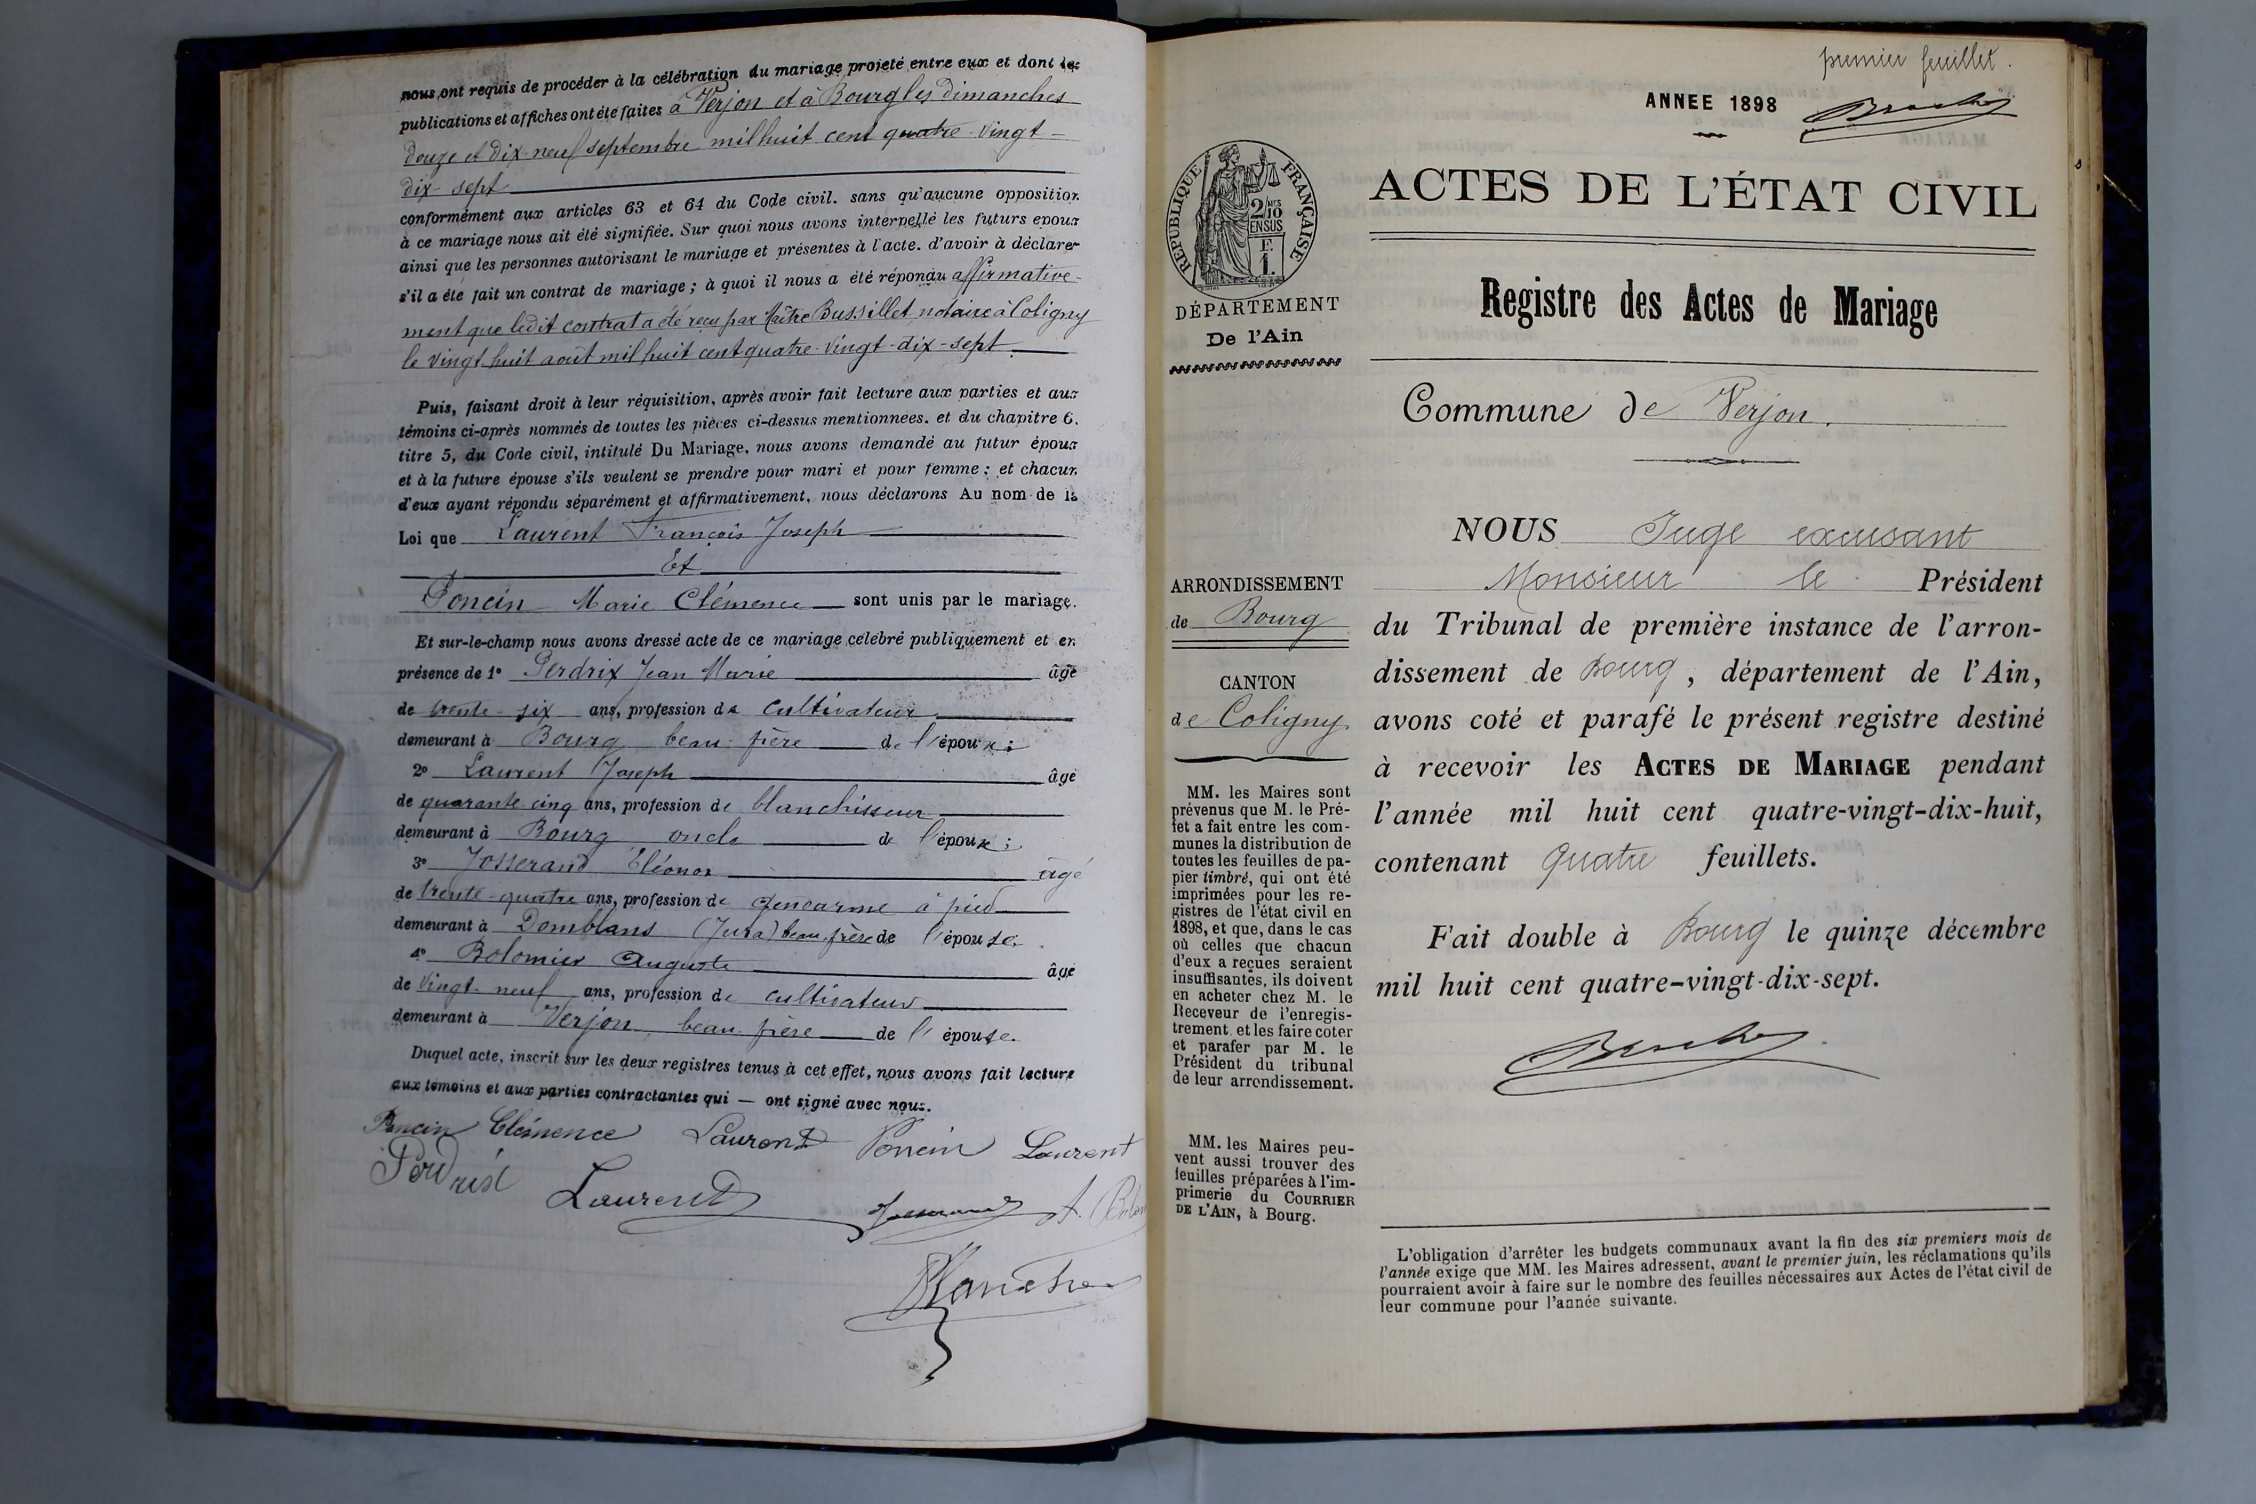 nous ont requis de procéder à la célébration du mariage projeté entre eux et dont les
publications et affiches ont été faites à Verjon et à Bourg les dimanches
douze et dix-neuf septembre mil huit cent quatre-vingt-
dix-sept
conformément aux articles 63 et 64 du Code civil. sans qu'aucune opposition
à ce mariage nous ait été signifiée. Sur quoi nous avons interpellé les futurs epoux
ainsi que les personnes autorisant le mariage et présentes à l'acte. d'avoir à déclarer
s'il a été fait un contrat de mariage ; à quoi il nous a été répondu affirmative-
ment que ledit contrat a été reçu par Maître Bussillet notaire à Coligny
le vingt huit août mil huit cent quatre-vingt-dix-sept.
Puis, faisant droit à leur réquisition, après avoir fait lecture aux parties et aux
témoins ci-après nommés de toutes les pièces ci-dessus mentionnees. et du chapitre 6.
titre 5, du Code civil, intitulé Du Mariage, nous avons demandé au futur époux
et à la future épouse s'ils veulent se prendre pour mari et pour femme ; et chacun
d'eux ayant répondu séparément et affirmativement, nous déclarons Au nom de la
Loi que Laurent François Joseph
Et
Poncin Marie Clémence sont unis par le mariage.
Et sur-le-champ nous avons dressé acte de ce mariage celebré publiquement et en
présence de 1° Perdrix Jean Marie âgé
de trente-six ans, profession de cultivateur
demeurant à Bourg beau-frère de l'époux ;
2° Laurent Joseph âgé
de quarante-cinq ans, profession de blanchisseur
demeurant à Bourg oncle de l'époux ;
3° Josserand Eléonor âgé
de trente-quatre ans, profession de gendarme à pied
demeurant à Domblans (Jura) beau-frère de l'épouse.
4° Bolomier Auguste âgé
de vingt-neuf ans, profession de cultivateur
demeurant à Verjon, beau-frère de l'épouse.
Duquel acte, inscrit sur les deux registres tenus à cet effet, nous avons fait lecture
aux témoins et aux parties contractantes qui — ont signé avec nous.
Poncin Clémence Laurent Poncin Laurent
Perdrix
Laurent Josserand A. Bolom
premier feuillet.
ANNEE 1898
RÉPUBLIQUE FRANÇAISE
2/10 EN SUS
DÉPARTEMENT
De l'Ain
ACTES DE L'ÉTAT CIVIL
Registre des Actes de Mariage
Commune de Verjon.
ARRONDISSEMENT
de Bourg
CANTON
de Coligny
MM. les Maires sont
prévenus que M. le Pré-
fet a fait entre les com-
munes la distribution de
toutes les feuilles de pa-
pier timbré, qui ont été
imprimées pour les re-
gistres de l'état civil en
1898, et que, dans le cas
où celles que chacun
d'eux a reçues seraient
insuffisantes, ils doivent
en acheter chez M. le
Receveur de l'enregis-
trement et les faire coter
et parafer par M. le
Président du tribunal
de leur arrondissement.
MM. les Maires peu-
vent aussi trouver des
feuilles préparées à l'im-
primerie du COURRIER
DE L'AIN, à Bourg.
NOUS Juge excusant
Monsieur le Président
du Tribunal de première instance de l'arron-
dissement de Bourg, département de l'Ain,
avons coté et parafé le présent registre destiné
à recevoir les ACTES DE MARIAGE pendant
l'année mil huit cent quatre-vingt-dix-huit,
contenant Quatre feuillets.
Fait double à Bourg le quinze décembre
mil huit cent quatre-vingt-dix-sept.
L'obligation d'arrêter les budgets communaux avant la fin des six premiers mois de
l'année exige que MM. les Maires adressent, avant le premier juin, les réclamations qu'ils
pourraient avoir à faire sur le nombre des feuilles nécessaires aux Actes de l'état civil de
leur commune pour l'année suivante.